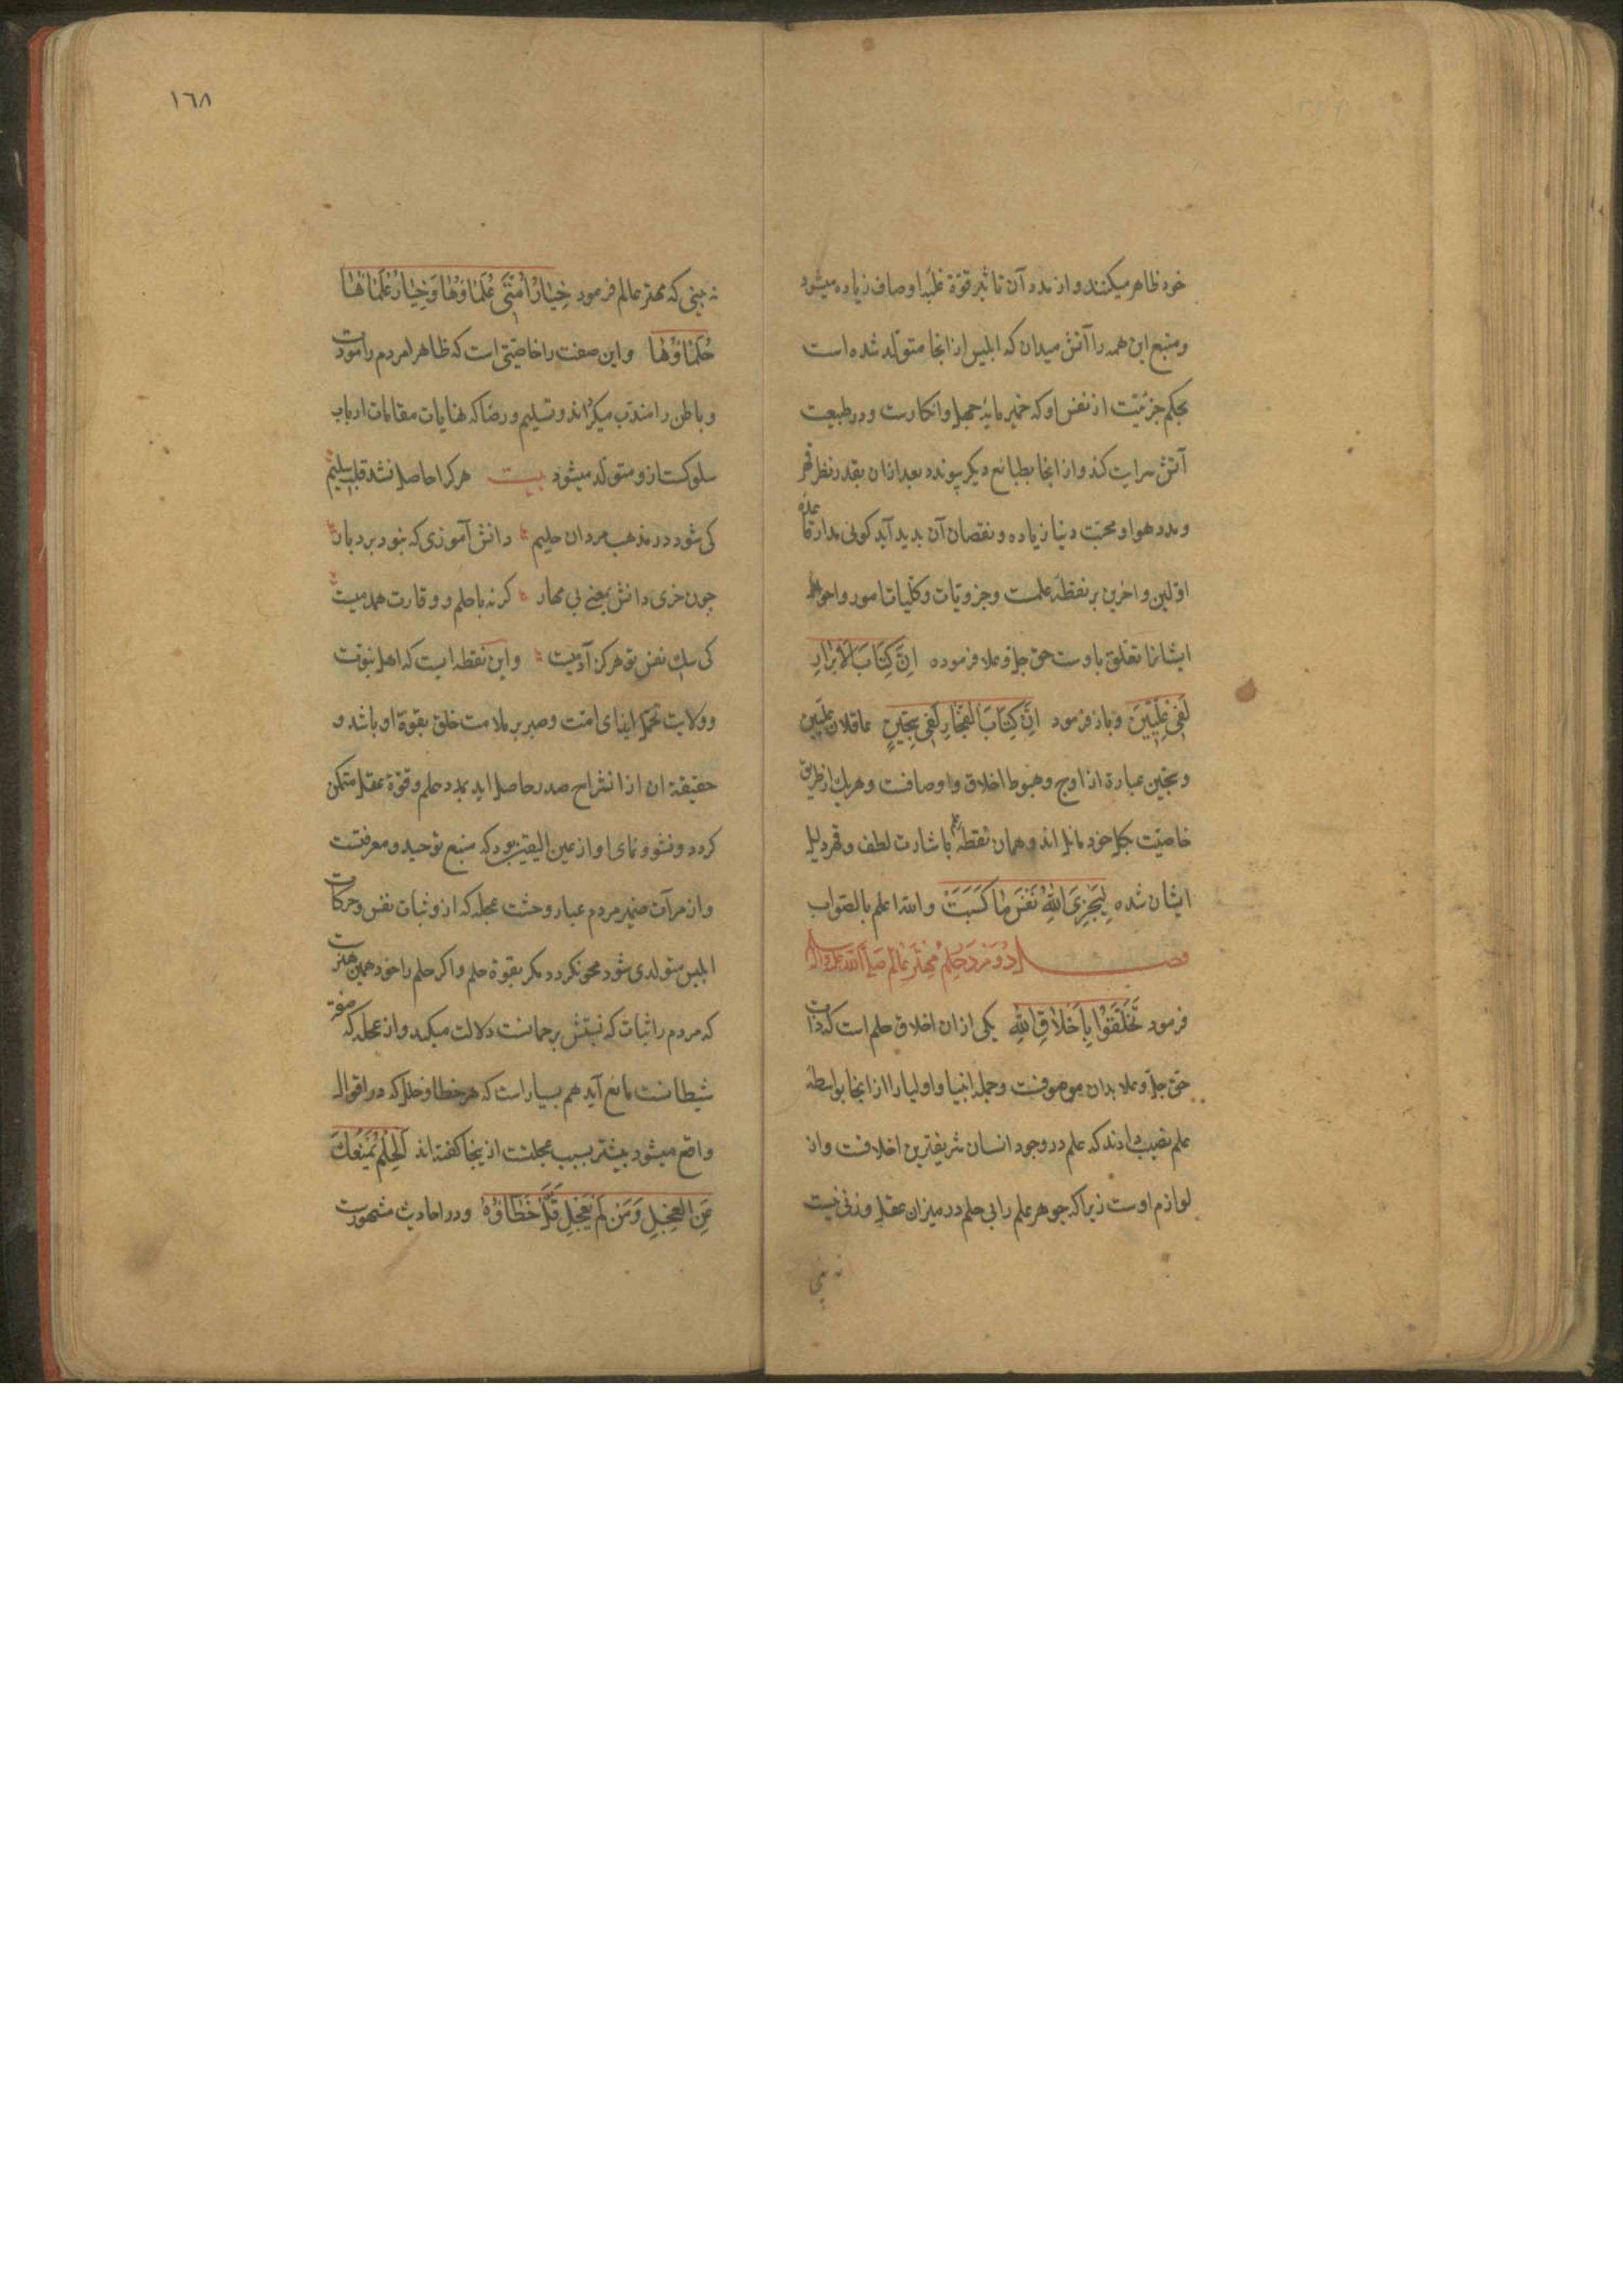 خود ظاهر میکنند و از مدد آن تاثیر قوّة غلبهٔ اوصاف زیاده میشود
و منبع این همه را آتش میدان که ابلیس از انجا متولد شده است
بحکم جزئیّت از نفس او که خمیر مایهٔ جهل و انکارست و در طبیعت
آتش سرایت کند و از انجا بطبایع دیکر پیوندد بعد ازان بقدر نظر قهر
و مدد هوا و محبّت دنیا زیاده و نقصان آن بدید آید کوئی مدار قاعدهٔ
اوّلین و اخرین بر نقطهٔ علمست و جزویات و کلّیات امور و احوال
ایشانرا تعلّق باوست حق جلّ و علا فرموده اِنَّ كِتَابَ الْاَبْرَارِ
لَفِي عِلِّيِّينَ و باز فرمود اِنَّ كِتَابَ الفُجَّارِ لَفِي سِجِّينٍ عاقلان علیین
و سجّین عبارة از اوج و هبوط اخلاق و اوصافست و هر یك از طریق
خاصیّت بکل خود مایل اند و همان نقطهٔ علم باشارت لطف و قهر دلیل
ایشان شده لِيَجْزِيَ اللهُ نَفْسَ مٰا كَسَبَتْ و الله اعلم بالصّواب
فصل دُوَمْ دَرْ حِلْمِ مِهْتَرِ عٰالَم صَلَّى اللهُ عليه وآله
فرمود تَخَلَّقُوْا بِاَخْلَاقِ اللهِ یکی از ان اخلاق حلم است که ذات
حق جلّ و علا بدان موصوفست و جمله انبیا و اولیا را از انجا بواسطهٔ
علم نصیب دادند که علم در وجود انسان شریفترین اخلاقست و از
لوازم اوست زیرا که جوهر علم را بی حلم در میزان عقل وزنی نیست
نه بینی
١٦٨
نه بینی که مهتر عالم فرمود خِيٰارُ اُمَّتِي عُلَمٰاؤُهٰا وَخِيٰارُ عُلَمٰائِهٰا
حُلَمٰاؤُهٰا و این صفت را خاصیّتی است که ظاهر مردم را مودّب
و باطن را مهذب میکرداند و تسلیم و رضا که نهایات مقامات ارباب
سلوکست ازو متولّد میشود بیت هر کرا حاصل نشد قلب سلیم
کی شود در مذهب مردان حلیم دانش آموزی که نبود بردبار
چون خری دانش یعنی بی مهار کر نه با حلم و وقارت همدمیست
کی سك نفس تو هرکز آدمیست و این نقطه ایست که اهل نبوّت
و ولایت تحمّل ایذای امّت و صبر بر ملامت خلق بقوة او باشد و
حقیقة ان از انشراح صدر حاصل اید بمدد حلم و قوّة عقل متمکن
کردد و نشو و نمای او از عین الیقین بود که منبع توحید و معرفتست
و از مرآت ضمیر مردم غبار وحشت عجله که ازو ثبات نفس و حرکات
ابلیس متولد می شود محو نکردد مکر بقوة حلم و اکر حلم را خود همین هنرست
که مردم را ثبات که نسبتش برحمانست دلالت میکند و از عجله که صفة
شیطانست مانع آید هم بسیار است که هر خطا و خلل که در اقوال
واقع میشود بیشتر بسبب عجلتست از ینجا کفته اند اَلْحِلْمُ يَمْنَعُكَ
عَنِ العَجَلِ وَمَنْ لَمْ يَعْجَلْ قَلَّ خَطَاؤُهُ و در احادیث مشهورست